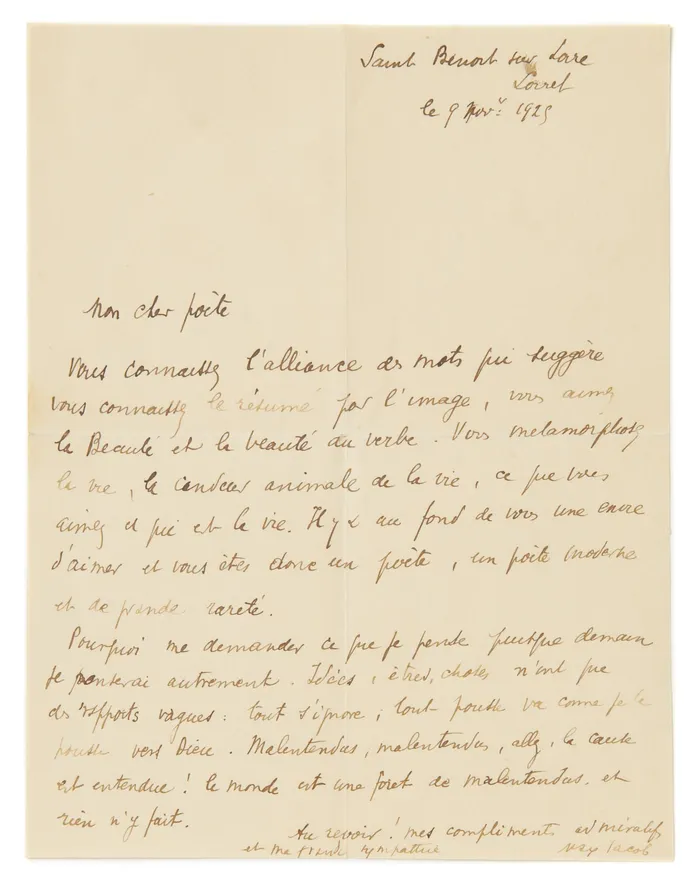 Saint Benoit sur Loire
Loiret
le 9 Novr. 1925
Mon cher poète
Vous connaissez l'alliance des mots qui suggère
vous connaissez le résumé par l'image, vous aimez
la Beauté et la beauté du verbe. Vous metamorphosez
la vie, la candeur animale de la vie, ce que vous
aimez et qui est la vie. Il y a au fond de vous une envie
d'aimer et vous êtes donc un poète, un poète moderne
et de grande rareté.
Pourquoi me demander ce que je pense puisque demain
je penserai autrement. Idées, êtres, choses n'ont que
des rapports vagues : tout s'ignore ; tout pousse va comme je le
pousse vers Dieu. Malentendus, malentendus, allez, la cause
est entendue ! le monde est une foret de malentendus. et
rien n'y fait.
Au revoir ! mes compliments admiratifs
et ma grande sympathie Max Jacob